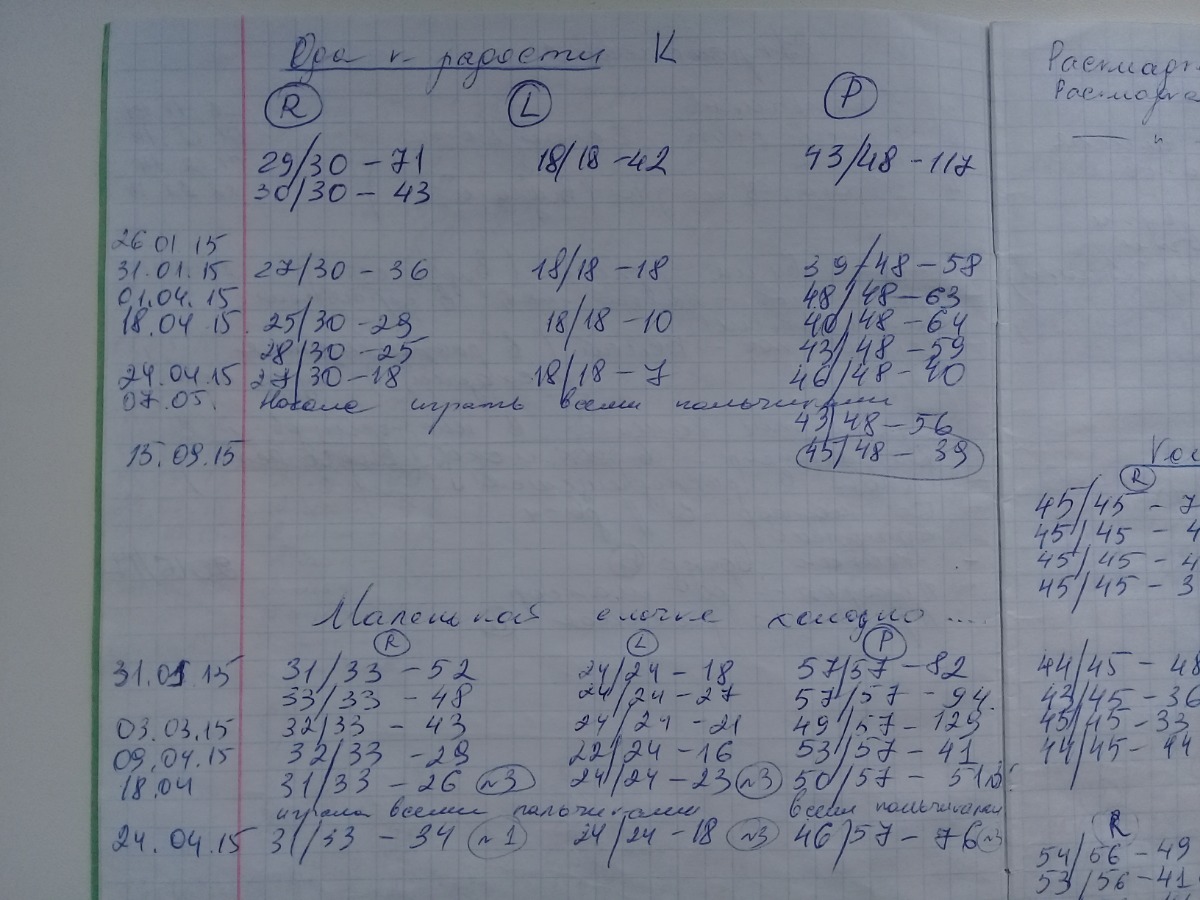 Ода к радости К
R L P
29/30 - 71 18/18 - 42 43/48 - 117
30/30 - 43
26 01 15
31.01.15 27/30 - 36 18/18 - 18 39/48 - 58
01.04.15 48/48 - 63
18.04 15 25/30 - 29 18/18 - 10 40/48 - 64
28/30 - 25 43/48 - 59
24.04.15 27/30 - 18 18/18 - 7 46/48 - 40
07.05. Начала играть всеми пальчиками
43/48 - 56
15.09.15 45/48 - 39
Маленькой елочке холодно ....
R L P
31.01.15 31/33 - 52 24/24 - 18 57/57 - 82
33/33 - 48 24/24 - 27 57/57 - 94
03.03.15 32/33 - 43 24/24 - 21 49/57 - 129
09.04.15 32/33 - 29 22/24 - 16 53/57 - 41
18.04 31/33 - 26 №3 24/24 - 23 №3 50/57 - 51
играла всеми пальчиками всеми пальчиками
24.04.15 31/33 - 34 №1 24/24 - 18 №3 46/57 - 76 №3
R
45/45 - 7
45/45 - 4
45/45 - 4
45/45 - 3
44/45 - 48
43/45 - 36
45/45 - 33
44/45 - 44
R
54/56 - 49
53/56 - 41